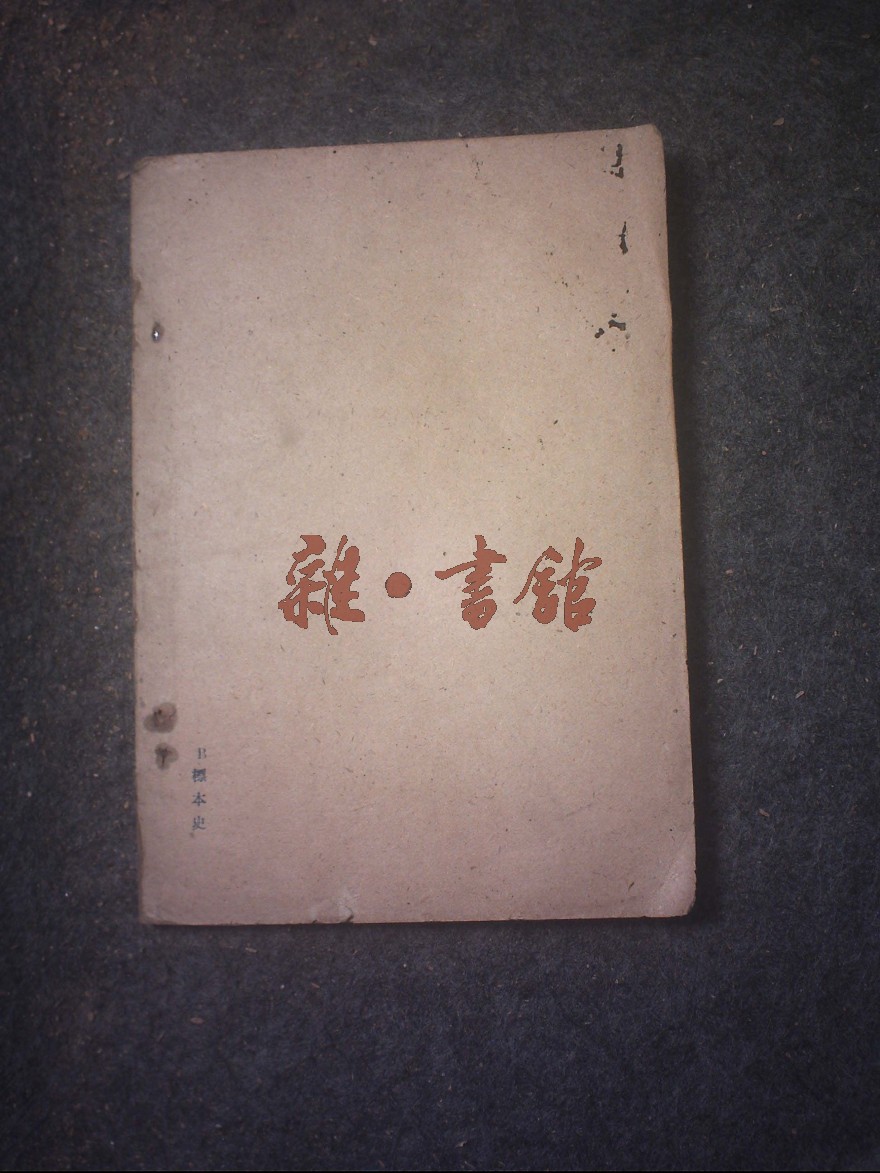 雜·書館
B標本史